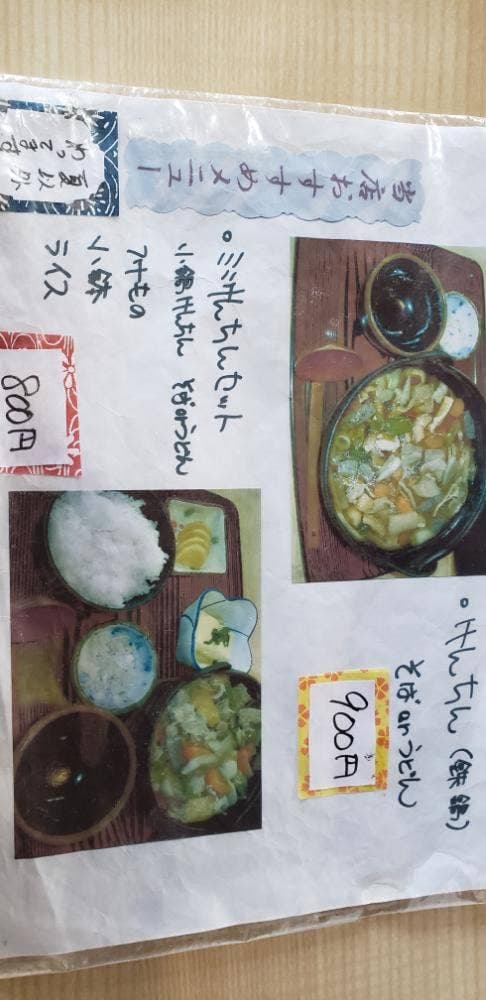 当店おすすめメニュー
夏以外
やってます
・けんちん(鉄鍋)
そばorうどん
900円
・ミニけんちんセット
小鍋けんちん そばorうどん
つけもの
小鉢
ライス
800円